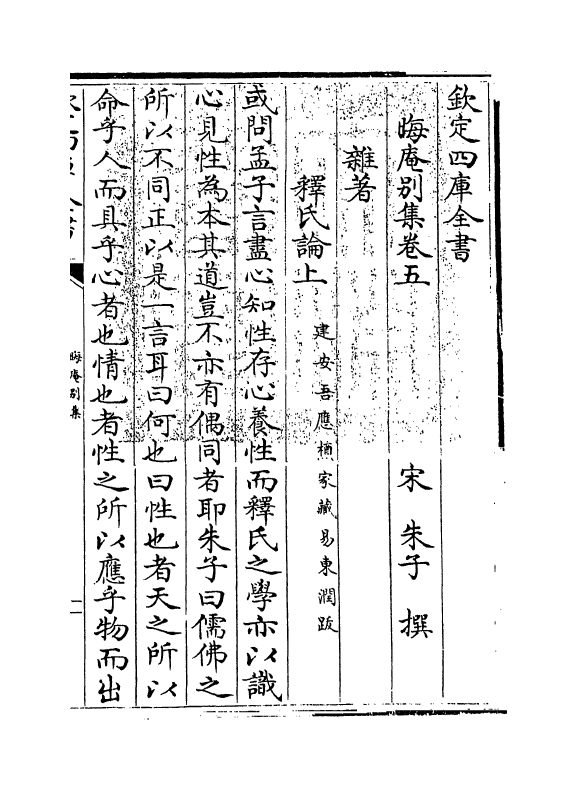 欽定四庫全書
晦庵別集卷五
宋 朱子 撰
雜著
釋氏論上
建安吾應楠家藏易東潤跋
或問孟子言盡心知性存心養性而釋氏之學亦以識
心見性為本其道豈不亦有偶同者耶朱子曰儒佛之
所以不同正以是一言耳曰何也曰性也者天之所以
命乎人而具乎心者也情也者性之所以應乎物而出
晦庵別集